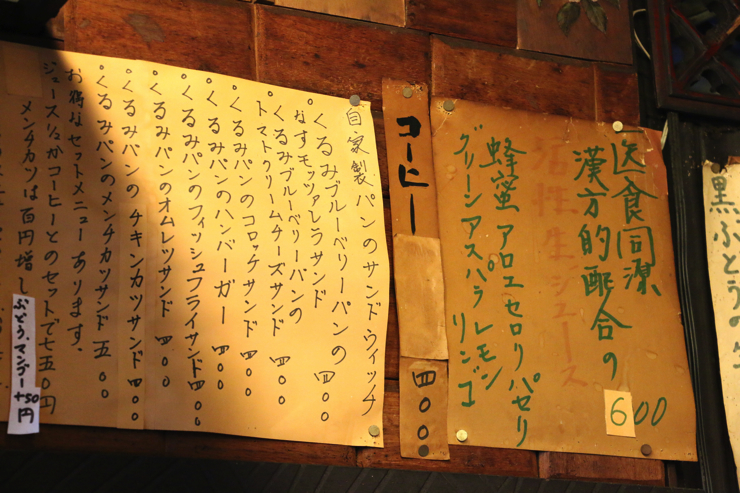 黒ぶどうの生
医食同源
漢方的配合の
活性生ジュース
蜂蜜 アロエ セロリ パセリ
グリーンアスパラ レモン
リンゴ
600
コーヒー
四〇〇
自家製パンのサンドウィッチ
・くるみブルーベリーパンの
なすモッツァレラサンド 四〇〇
・くるみブルーベリーパンの
トマトクリームチーズサンド 四〇〇
・くるみパンのコロッケサンド 四〇〇
・くるみパンのハンバーガー 四〇〇
・くるみパンのフィッシュフライサンド 四〇〇
・くるみパンのオムレツサンド 四〇〇
・くるみパンのチキンカツサンド 四〇〇
・くるみパンのメンチカツサンド 五〇〇
お得なセットメニューあります。
ジュース½かコーヒーとのセットで七五〇円
メンチカツは百円増し
ぶどう、マンゴー +50円